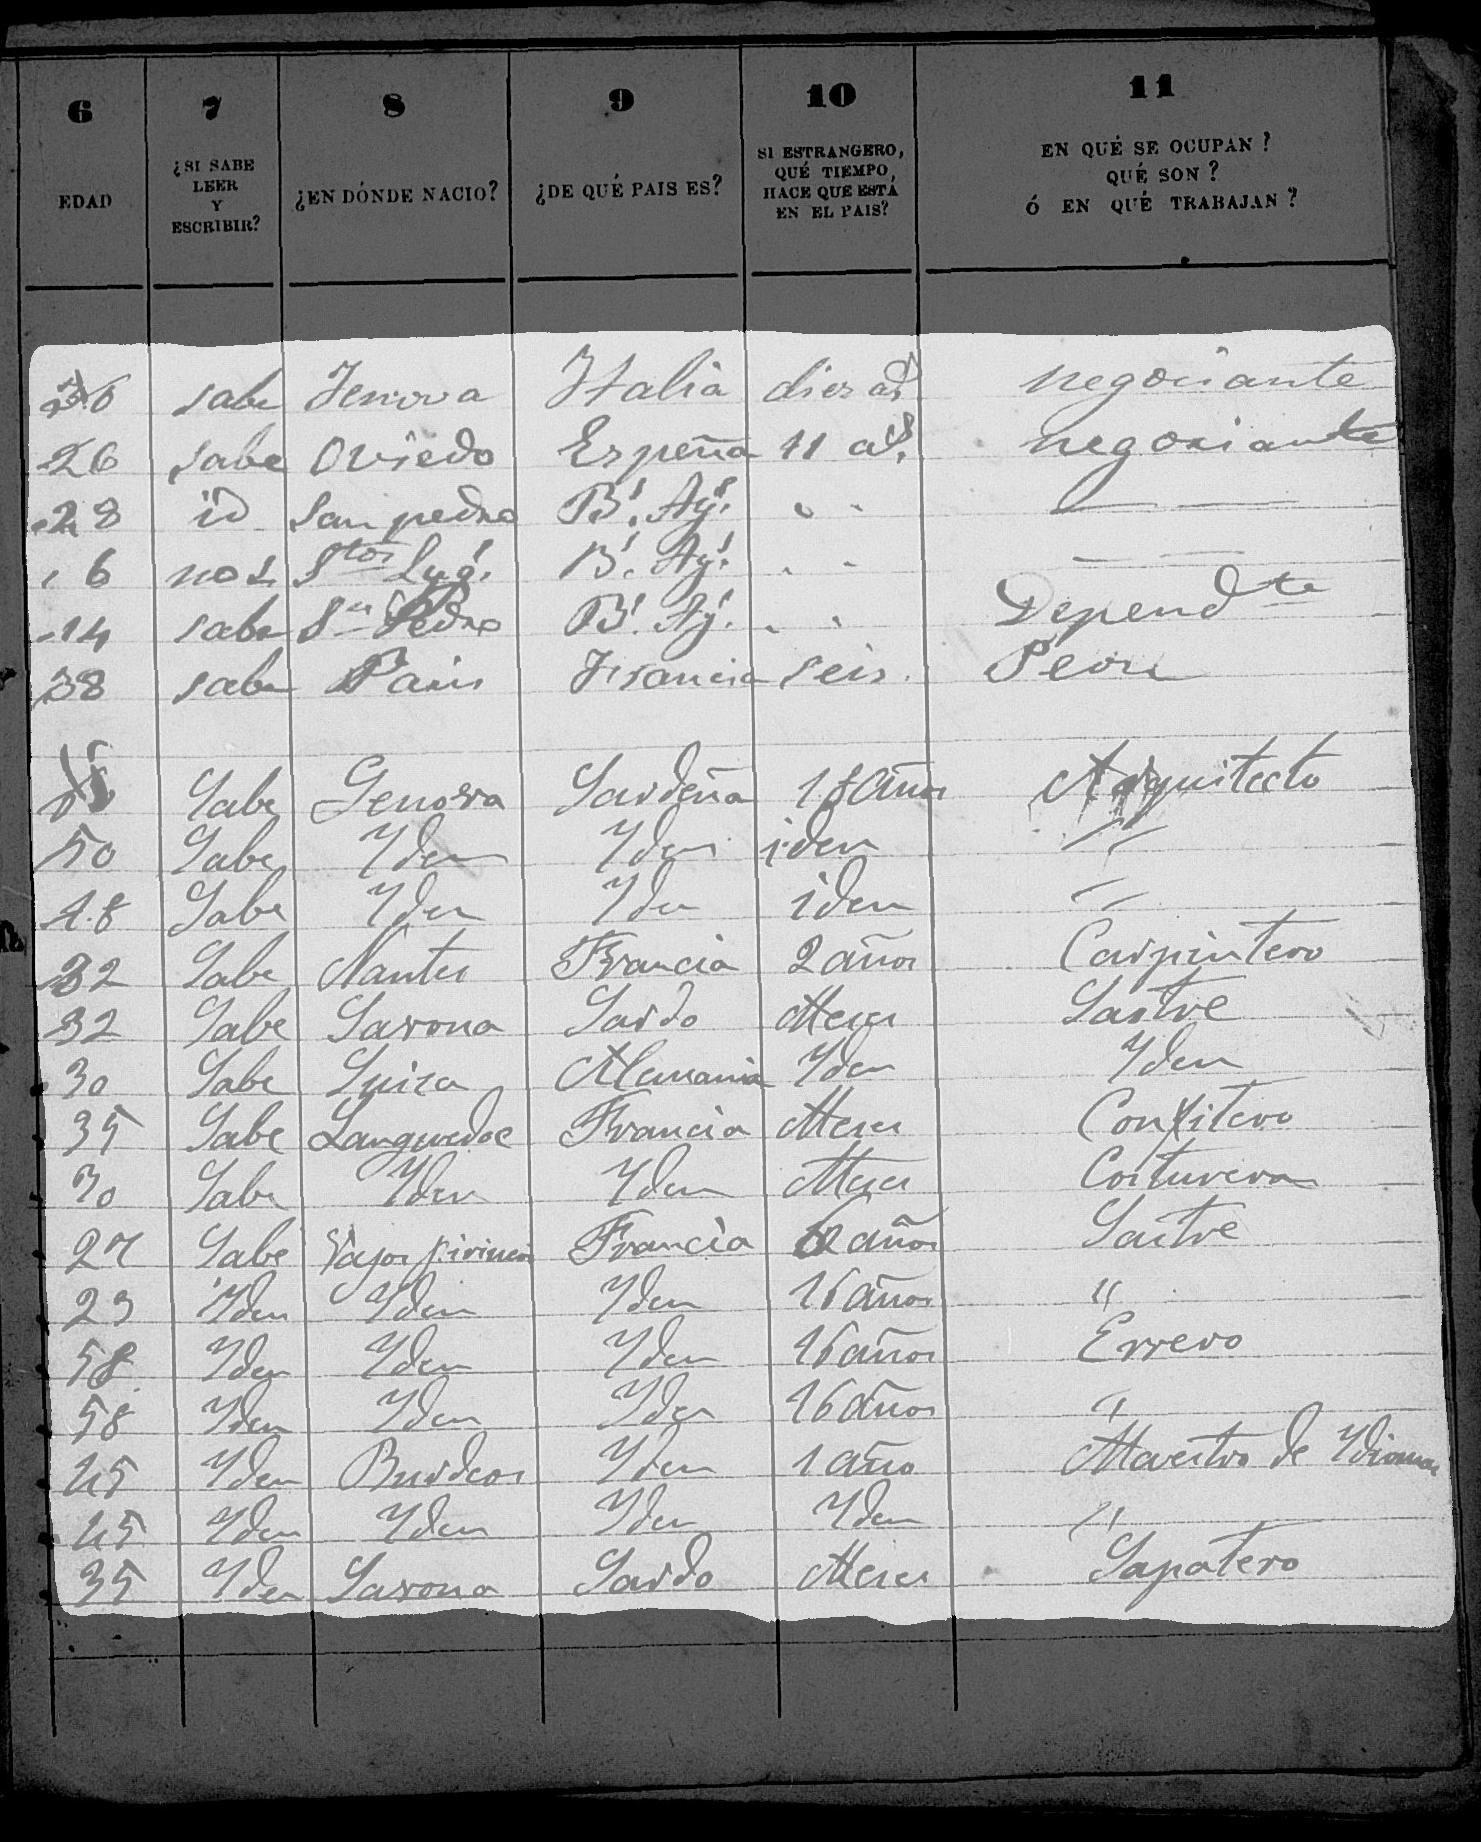 6 7 8 9 10 11
EDAD ¿SI SABE LEER Y ESCRIBIR? ¿EN DÓNDE NACIO? ¿DE QUÉ PAIS ES? SI ESTRANGERO, QUÉ TIEMPO, HACE QUE ESTÁ EN EL PAIS? EN QUÉ SE OCUPAN? QUÉ SON? Ó EN QUÉ TRABAJAN?
36 sabe Jenova Italia dies as negociante
26 sabe Oviedo España 11 as negociante
28 id San pedro Bs. Ays.
6 no s. Stos Lugs. Bs. Ays.
14 sabe Sn Pedro Bs. Ays. Dependte
38 sabe Paris Francia seis Peon
Sabe Genova Sardeña 18 años Arquitecto
50 Sabe Yden Yden iden "
18 Sabe Yden Yden iden "
32 Sabe Nantes Francia 2 años Carpintero
32 Sabe Savona Sardo Meses Sastre
30 Sabe Suiza Alemania Yden Yden
35 Sabe Languedoc Francia Meses Confitero
30 Sabe Yden Yden Meses Costurera
27 Sabe Vajos Pirineos Francia años Sastre
23 Yden Yden Yden 16 años "
58 Yden Yden Yden 16 años Errero
58 Yden Yden Yden 16 años "
45 Yden Burdeos Yden 1 año Maestro de Ydiomas
45 Yden Yden Yden Yden "
35 Yden Savona Sardo Meses Sapatero